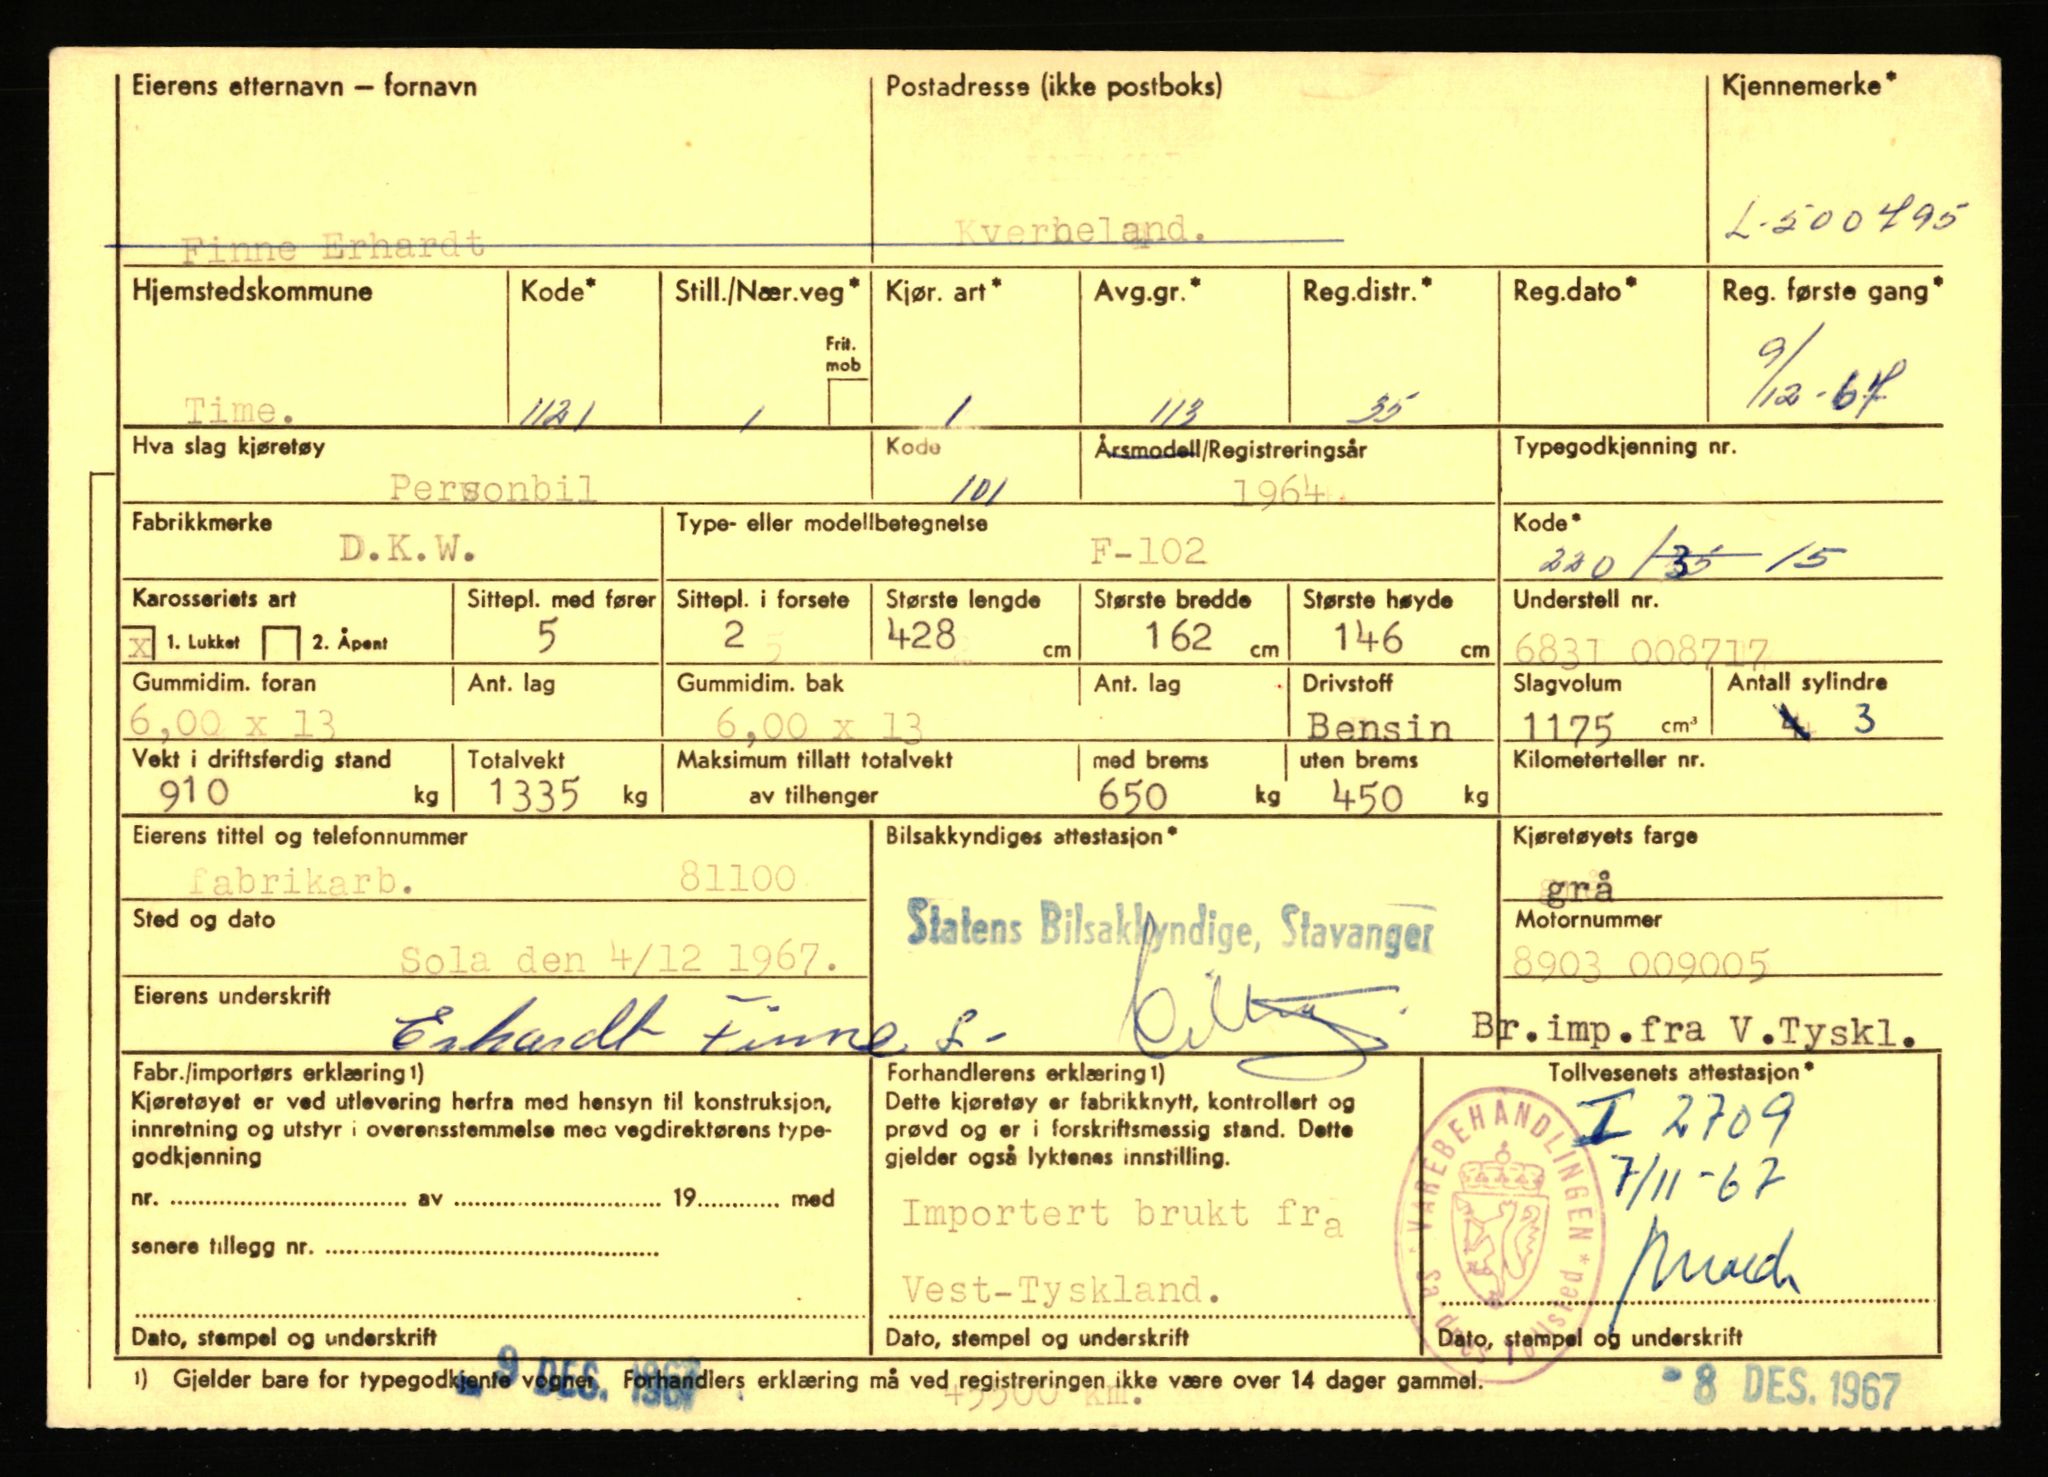 Eierens etternavn – fornavn
Postadresse (ikke postboks)
Kjennemerke*
Finne Erhardt
Kverneland.
L-500795
Hjemstedskommune
Kode*
Still./Nær.veg*
Kjør. art*
Avg.gr.*
Reg.distr.*
Reg.dato*
Reg. første gang*
Frit. mob
Time.
1121
1
1
113
35
9/12-67
Hva slag kjøretøy
Kode
Årsmodell/Registreringsår
Typegodkjenning nr.
Personbil
101
1964.
Fabrikkmerke
Type- eller modellbetegnelse
Kode*
D.K.W.
F-102
220/35 15
Karosseriets art
Sittepl. med fører
Sittepl. i forsete
Største lengde
Største bredde
Største høyde
Understell nr.
x 1. Lukket 2. Åpent
5
2
428 cm
162 cm
146 cm
6831 008717
Gummidim. foran
Ant. lag
Gummidim. bak
Ant. lag
Drivstoff
Slagvolum
Antall sylindre
6,00 x 13
6,00 x 13
Bensin
1175 cm³
4 3
Vekt i driftsferdig stand
Totalvekt
Maksimum tillatt totalvekt
med brems
uten brems
Kilometerteller nr.
910 kg
1335 kg
av tilhenger
650 kg
450 kg
Eierens tittel og telefonnummer
Bilsakkyndiges attestasjon*
Kjøretøyets farge
fabrikarb. 81100
grå
Sted og dato
Statens Bilsakkyndige, Stavanger
Motornummer
Sola den 4/12 1967.
8903 009005
Eierens underskrift
Erhardt Finne
Br.imp.fra V.Tyskl.
Fabr./importørs erklæring 1)
Kjøretøyet er ved utlevering herfra med hensyn til konstruksjon,
innretning og utstyr i overensstemmelse med vegdirektørens type-
godkjenning
nr. .......... av .......... 19.......... med
senere tillegg nr. ..........
Dato, stempel og underskrift
Forhandlerens erklæring 1)
Dette kjøretøy er fabrikknytt, kontrollert og
prøvd og er i forskriftsmessig stand. Dette
gjelder også lyktenes innstilling.
Importert brukt fra
Vest-Tyskland.
Dato, stempel og underskrift
Tollvesenets attestasjon*
I 2709
7/11-67
VAREBEHANDLINGEN
Dato, stempel og underskrift
1) Gjelder bare for typegodkjente vogner. Forhandlers erklæring må ved registreringen ikke være over 14 dager gammel.
9 DES. 1967
45500 km.
-8 DES. 1967